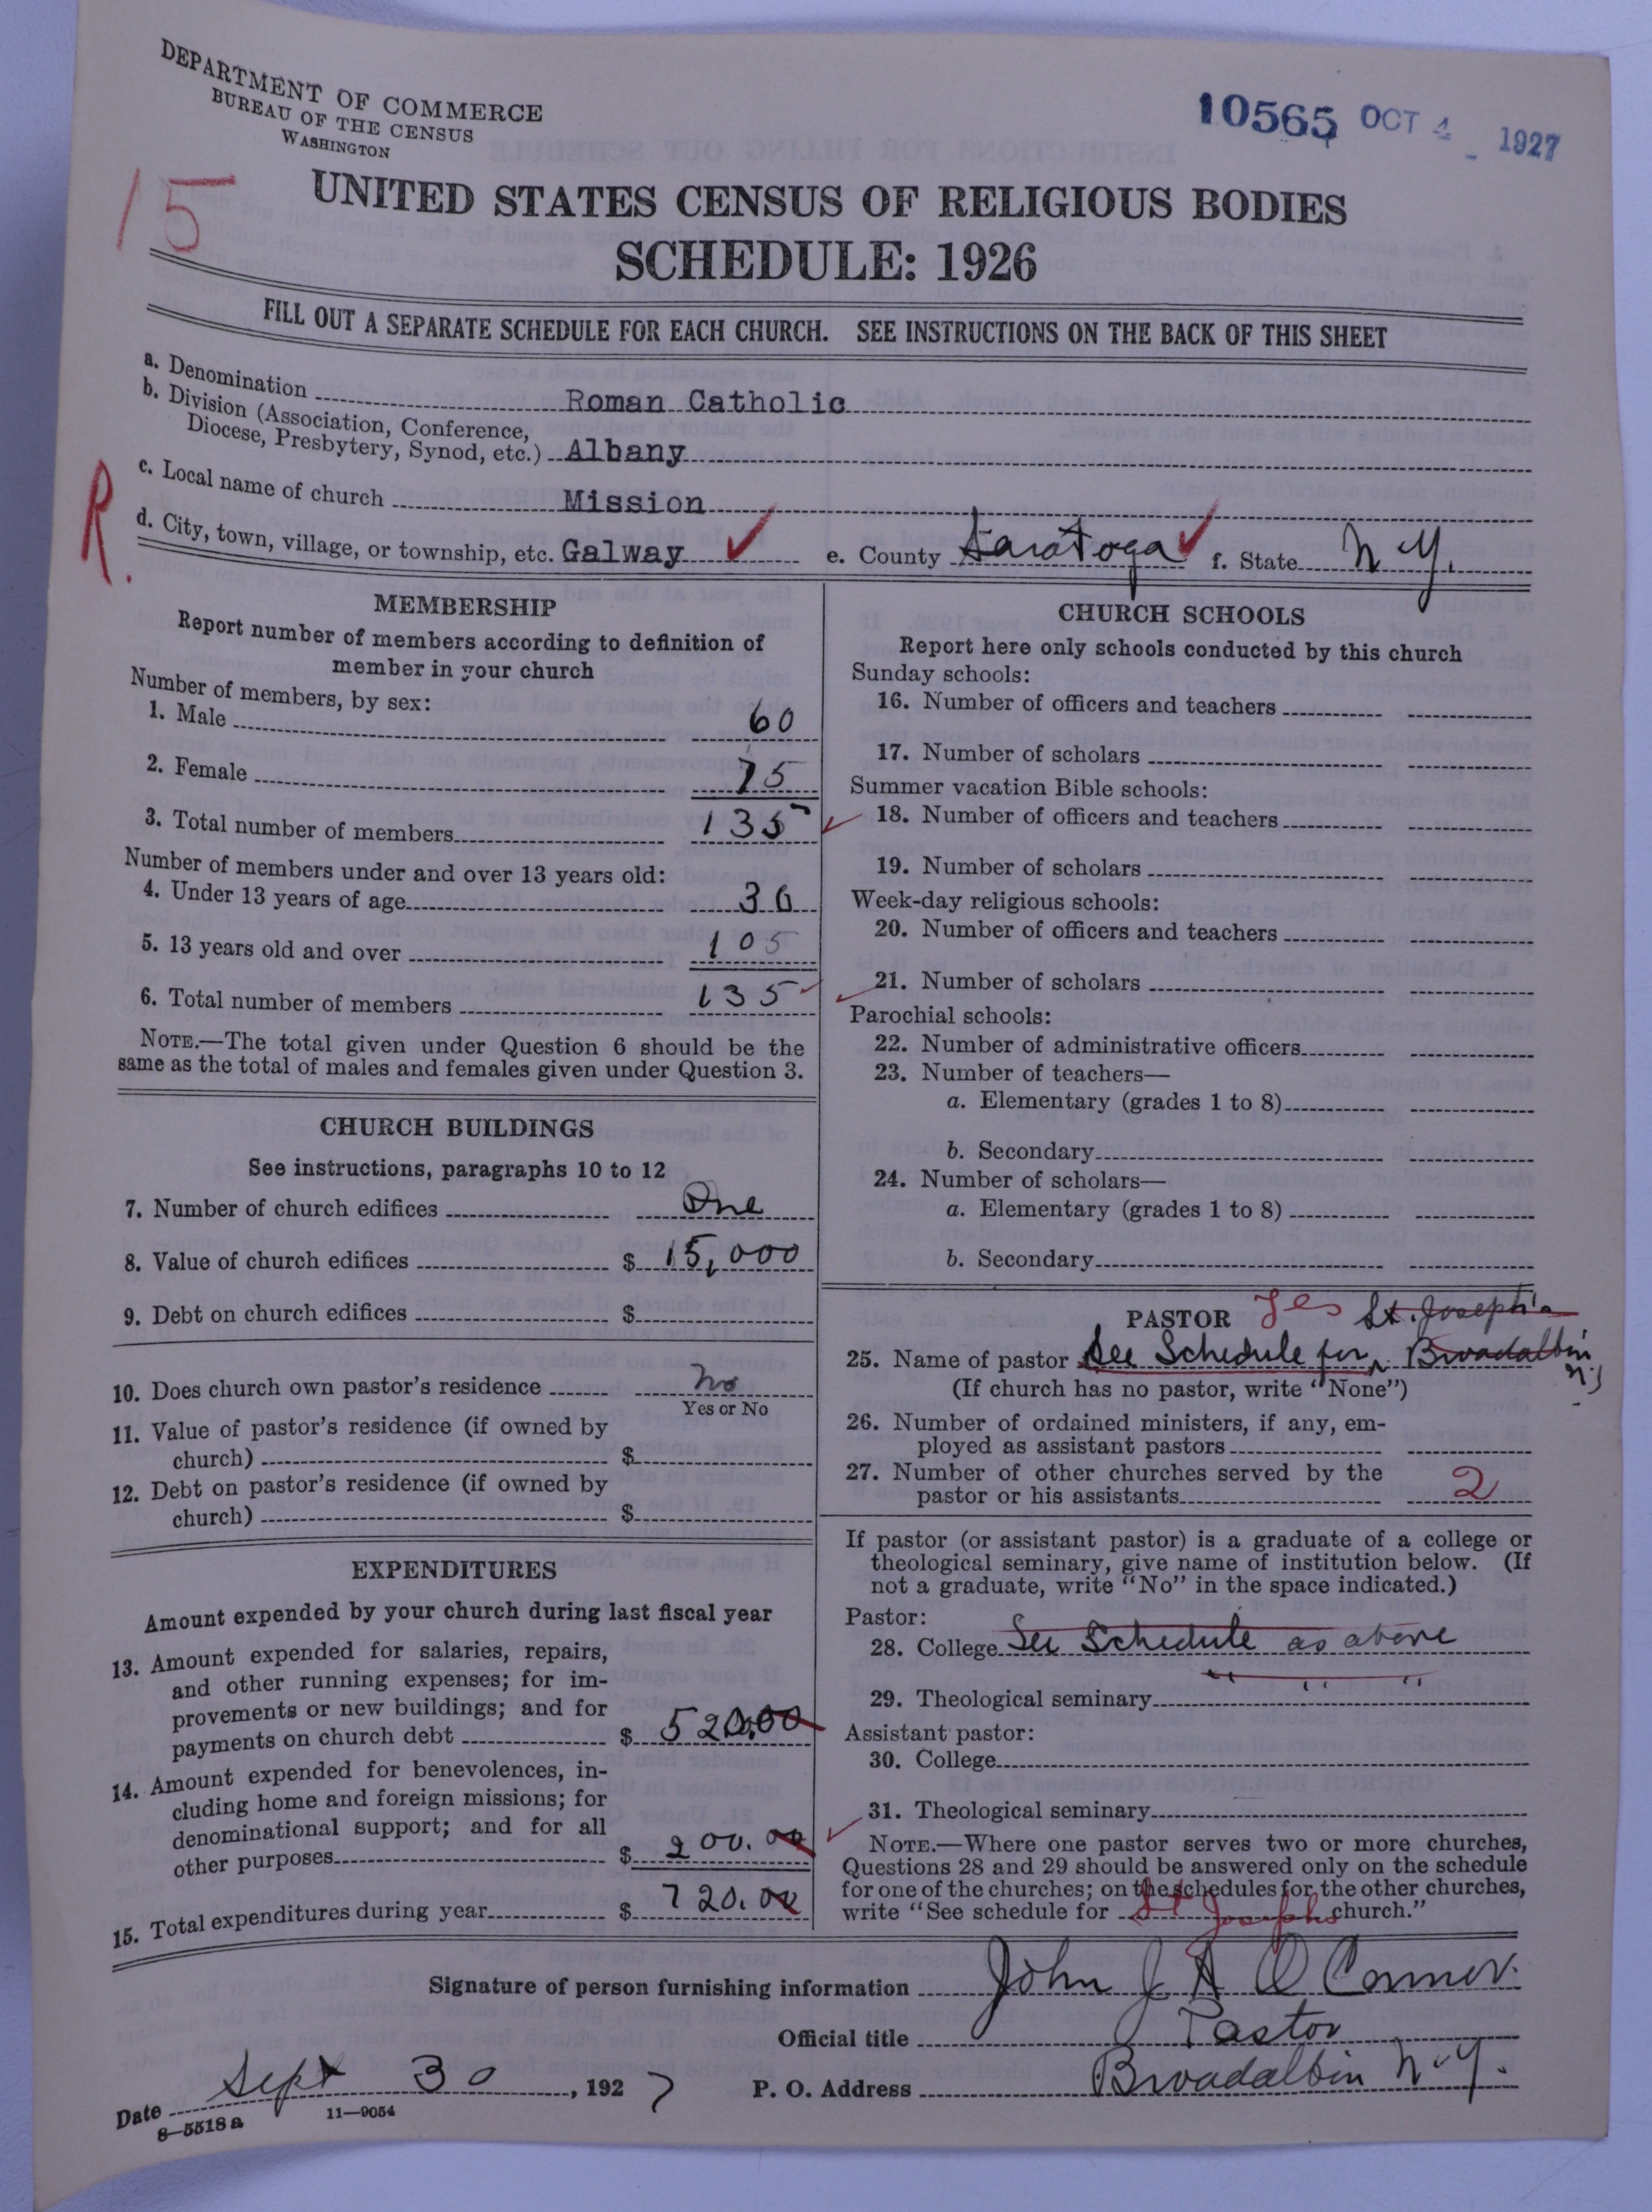 DEPARTMENT OF COMMERCE
BUREAU OF THE CENSUS
WASHINGTON
10565 OCT 4 1927
15
UNITED STATES CENSUS OF RELIGIOUS BODIES
SCHEDULE: 1926
FILL OUT A SEPARATE SCHEDULE FOR EACH CHURCH. SEE INSTRUCTIONS ON THE BACK OF THIS SHEET
a. Denomination Roman Catholic
b. Division (Association, Conference,
Diocese, Presbytery, Synod, etc.) Albany
c. Local name of church Mission
R.
d. City, town, village, or township, etc. Galway ✓ e. County Saratoga ✓ f. State N.Y.
MEMBERSHIP
Report number of members according to definition of
member in your church
Number of members, by sex:
1. Male 60
2. Female 75
3. Total number of members 135
Number of members under and over 13 years old:
4. Under 13 years of age 30
5. 13 years old and over 105
6. Total number of members 135
NOTE.—The total given under Question 6 should be the
same as the total of males and females given under Question 3.
CHURCH BUILDINGS
See instructions, paragraphs 10 to 12
7. Number of church edifices One
8. Value of church edifices $ 15,000
9. Debt on church edifices $
10. Does church own pastor's residence No
Yes or No
11. Value of pastor's residence (if owned by
church) $
12. Debt on pastor's residence (if owned by
church) $
EXPENDITURES
Amount expended by your church during last fiscal year
13. Amount expended for salaries, repairs,
and other running expenses; for im-
provements or new buildings; and for
payments on church debt $ 520.00
14. Amount expended for benevolences, in-
cluding home and foreign missions; for
denominational support; and for all
other purposes $ 200.00
15. Total expenditures during year $ 720.00
CHURCH SCHOOLS
Report here only schools conducted by this church
Sunday schools:
16. Number of officers and teachers
17. Number of scholars
Summer vacation Bible schools:
18. Number of officers and teachers
19. Number of scholars
Week-day religious schools:
20. Number of officers and teachers
21. Number of scholars
Parochial schools:
22. Number of administrative officers
23. Number of teachers—
a. Elementary (grades 1 to 8)
b. Secondary
24. Number of scholars—
a. Elementary (grades 1 to 8)
b. Secondary
PASTOR Yes St. Joseph's
25. Name of pastor See Schedule for Broadalbin N.Y.
(If church has no pastor, write "None")
26. Number of ordained ministers, if any, em-
ployed as assistant pastors
27. Number of other churches served by the
pastor or his assistants 2
If pastor (or assistant pastor) is a graduate of a college or
theological seminary, give name of institution below. (If
not a graduate, write "No" in the space indicated.)
Pastor:
28. College See Schedule as above
29. Theological seminary " " "
Assistant pastor:
30. College
31. Theological seminary
NOTE.—Where one pastor serves two or more churches,
Questions 28 and 29 should be answered only on the schedule
for one of the churches; on the schedules for the other churches,
write "See schedule for St Josephs church."
Signature of person furnishing information John J A O Connor.
Official title Pastor
Date Sept 30, 1927 P. O. Address Broadalbin N.Y.
8—5518a 11—9054